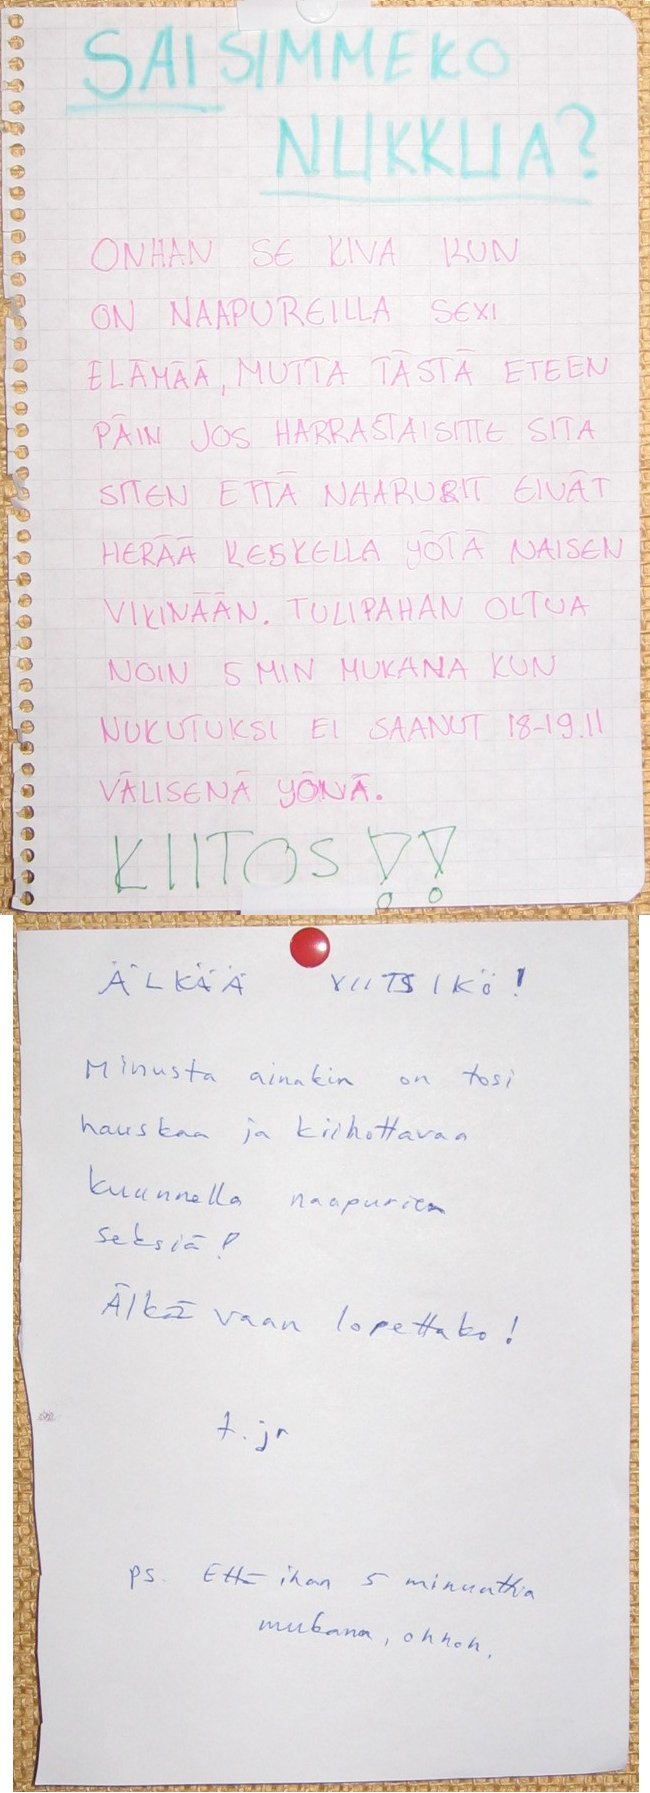 SAISIMMEKO
NUKKUA?
ONHAN SE KIVA KUN
ON NAAPUREILLA SEXI
ELÄMÄÄ, MUTTA TÄSTÄ ETEEN
PÄIN JOS HARRASTAISITTE SITA
SITEN ETTÄ NAAPURIT EIVÄT
HERÄÄ KESKELLA YÖTÄ NAISEN
VIKINÄÄN. TULIPAHAN OLTUA
NOIN 5 MIN MUKANA KUN
NUKUTUKSI EI SAANUT 18-19.11
VÄLISENÄ YÖNÄ.
KIITOS!!
ÄLKÄÄ VIITSIKÖ!
Minusta ainakin on tosi
hauskaa ja kiihottavaa
kuunnella naapurien
seksiä!
Älkää vaan lopettako!
t. jr
ps. Että ihan 5 minuuttia
mukana, ohhoh.